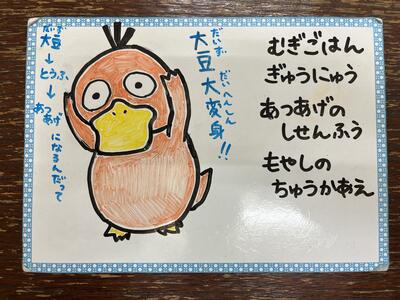 むぎごはん
ぎゅうにゅう
あつあげの
しせんふう
もやしの
ちゅうかあえ
だいず だいへんしん
大豆大変身!!
だいず
大豆
↓
とうふ
↓
あつあげ
になるんだって